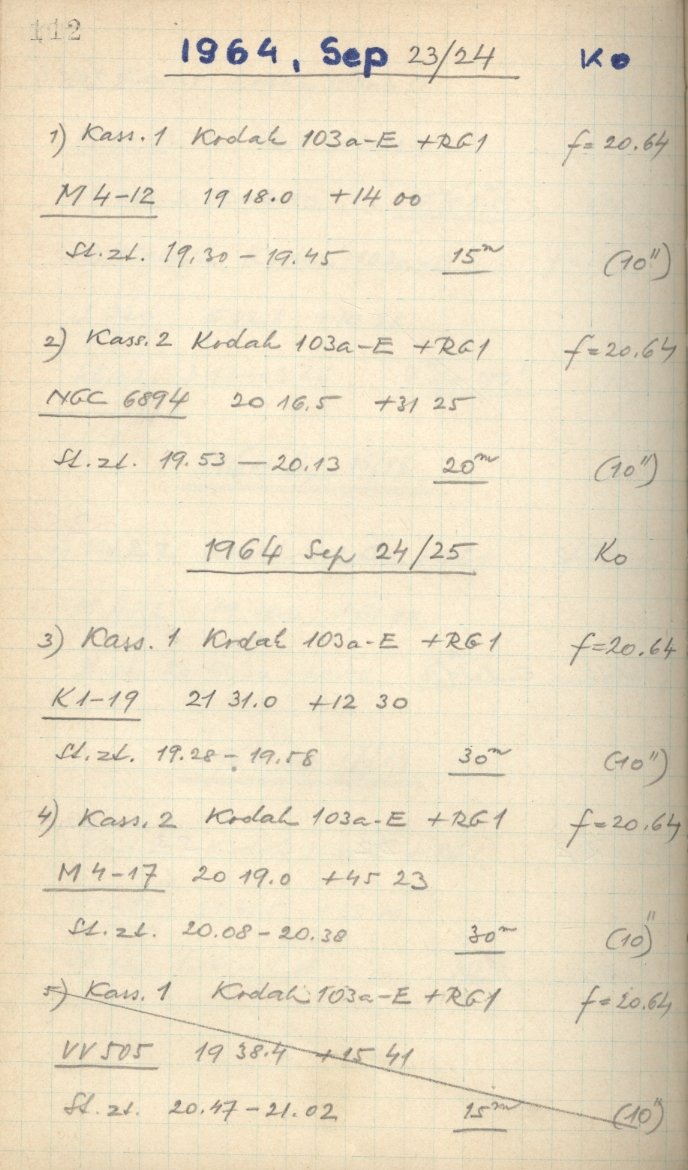 112
1964, Sep 23/24 Ko
1) Kass. 1 Kodak 103a-E +RG1 f=20.64
M 4-12 19 18.0 +14 00
St.zt. 19.30 - 19.45 15m (10")
2) Kass. 2 Kodak 103a-E +RG1 f=20.64
NGC 6894 20 16.5 +31 25
St.zt. 19.53 - 20.13 20m (10")
1964 Sep 24/25 Ko
3) Kass. 1 Kodak 103a-E +RG1 f=20.64
K1-19 21 31.0 +12 30
St.zt. 19.28 - 19.58 30m (10")
4) Kass. 2 Kodak 103a-E +RG1 f=20.64
M 4-17 20 19.0 +45 23
St.zt. 20.08 - 20.38 30m (10")
5) Kass. 1 Kodak 103a-E +RG1 f=20.64
VV 505 19 38.4 +15 41
St.zt. 20.47 - 21.02 15m (10")